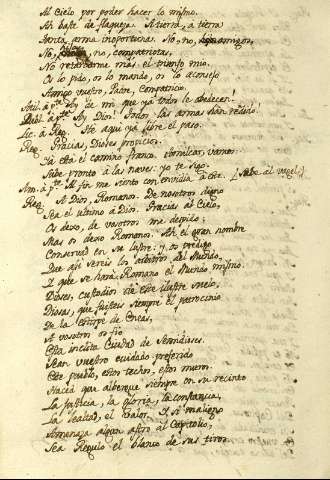 Al Cielo por poder hacer lo mismo.
Ah baste de flaqueza. A tierra, à tierra
tanta arma inoportuna. No, no, amigos,
No, no, compatriotas,
No retardarme más el triunfo mio.
Os lo pido, os lo mando, os lo aconsejo
Amigo vuestro, Padre, Compatricio.
Atil. à pte Ay de mi que ya todos le obedecen!
à pte Ay Dios! todos las armas han rendido.
Lic. à Reg. He aqui ya libre el paso.
Reg. Gracias, Dioses propicios.
Ya està el camino franco. Hamilcar, vamos:
Sube pronto à las naves: yo te sigo.
Am. à pte Al fin me siento con envidia à este. [Sube al vagel.]
Reg. A Dios, Romanos. De nosotros digno
Sea el ultimo à Dios. Gracias al Cielo,
Os dexo, de vosotros me despido;
Mas os dexo Romanos. Ah el gran nombre
Conservad en su lustre: y os predigo
Que asi sereis los arbitros del Mundo,
I que se hará Romano el Mundo mismo.
Dioses, custodios de este ilustre suelo,
Diosas, que fuisteis siempre el patrocinio
De la estirpe de Eneas,
A vosotros os fio
Esta inclita Ciudad de Semidioses.
Sean vuestro cuidado preferido
Este pueblo, estos techos, estos muros.
Haced que albergue siempre en su recinto
La justicia, la gloria, la constancia,
La lealtad, el valor. Y si maligno
Amenaza algun astro al Capitolio,
Sea Regulo el blanco de sus tiros.